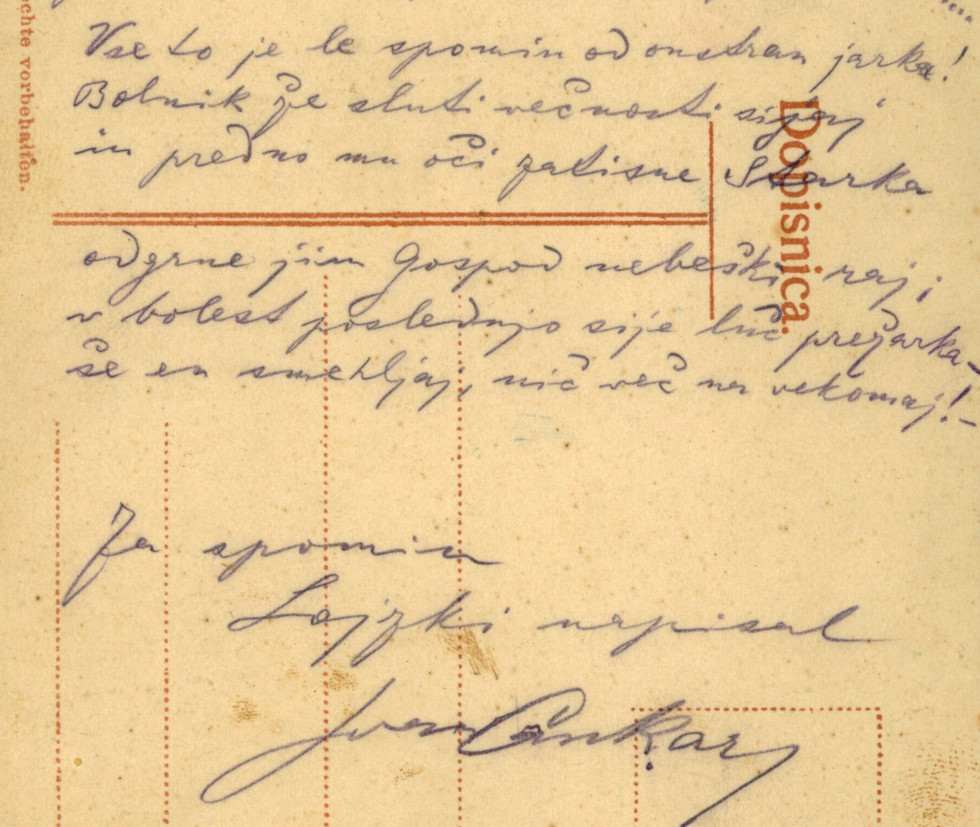 Vse to je le spomin od onstran jarka!
Bolnik že sluti večnosti sijaj
in predno mu oči zatisne Starka
odgrne jim Gospod nebeški raj;
v bolest poslednjo sije luč prežarka –
še en smehljaj, nič več na vekomaj! –
Za spomin
Lojzki napisal
Ivan Cankar
Dopisnica.
echte vorbehalten.